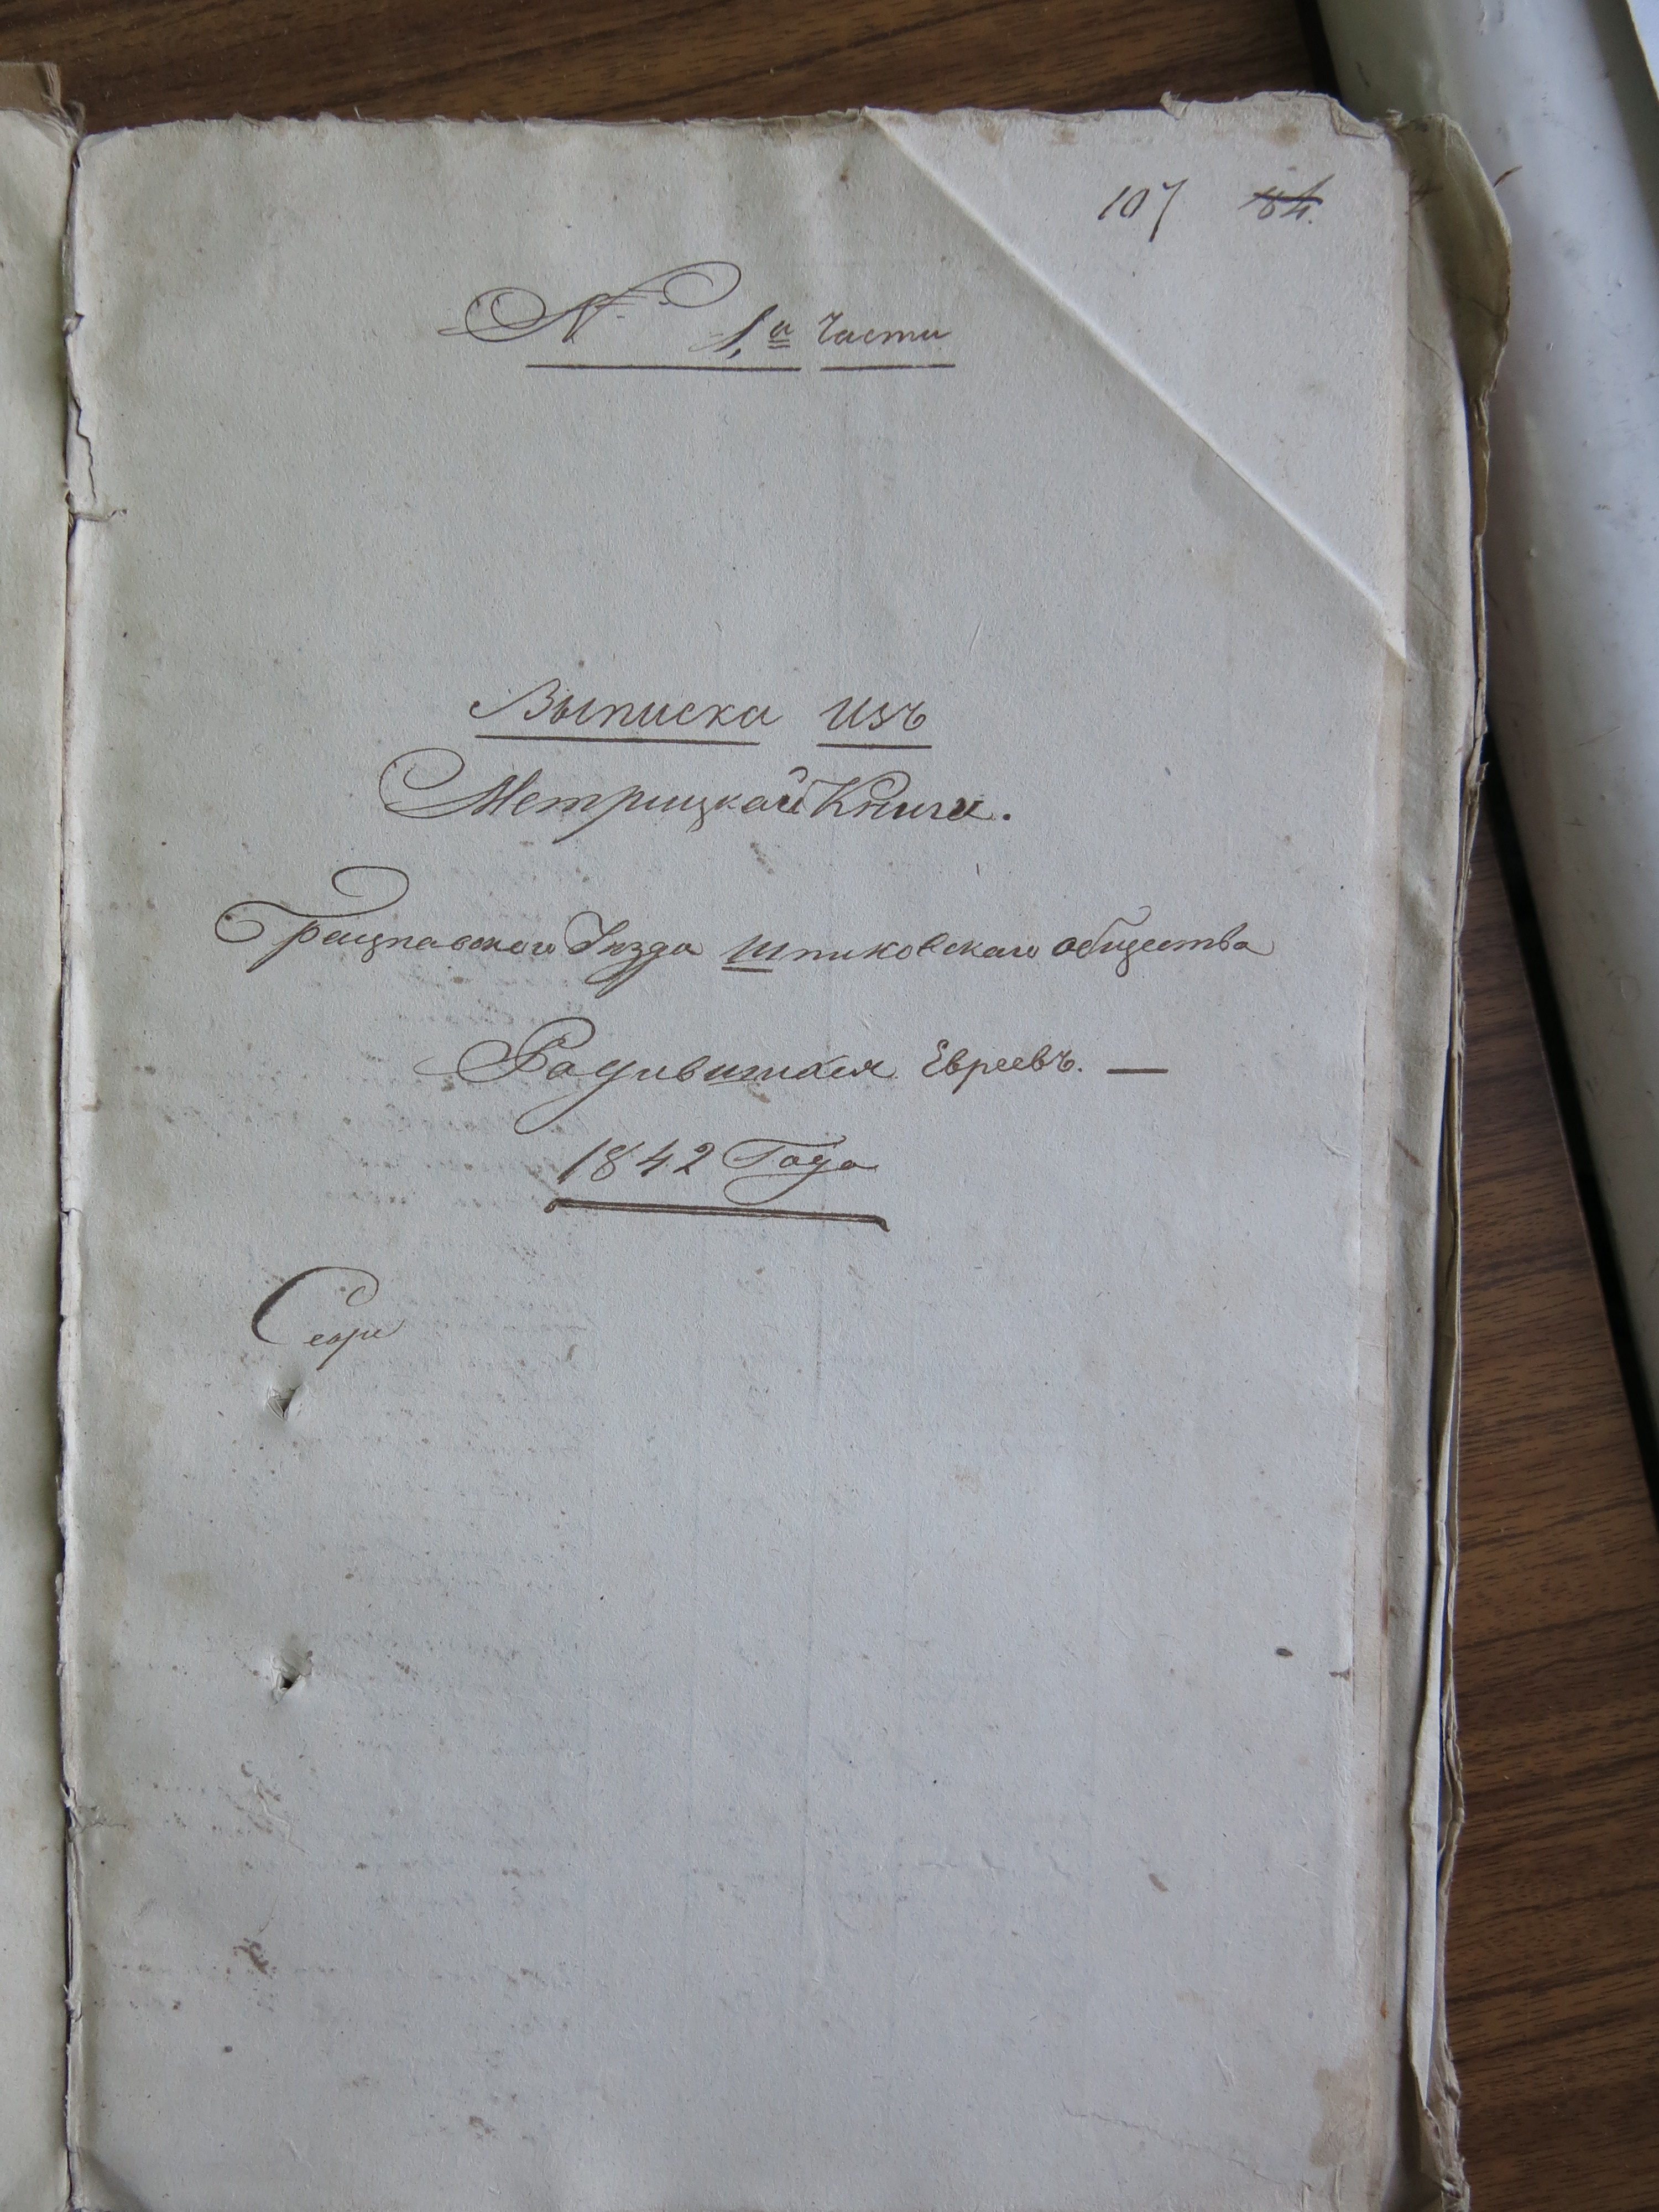 107 84.
№ 1,а Части
Выписка изъ
Метрицкай Книги.
Брацлавского Уезда Шпиковскаго общества
Радившихся Евреевъ. —
1842 Года